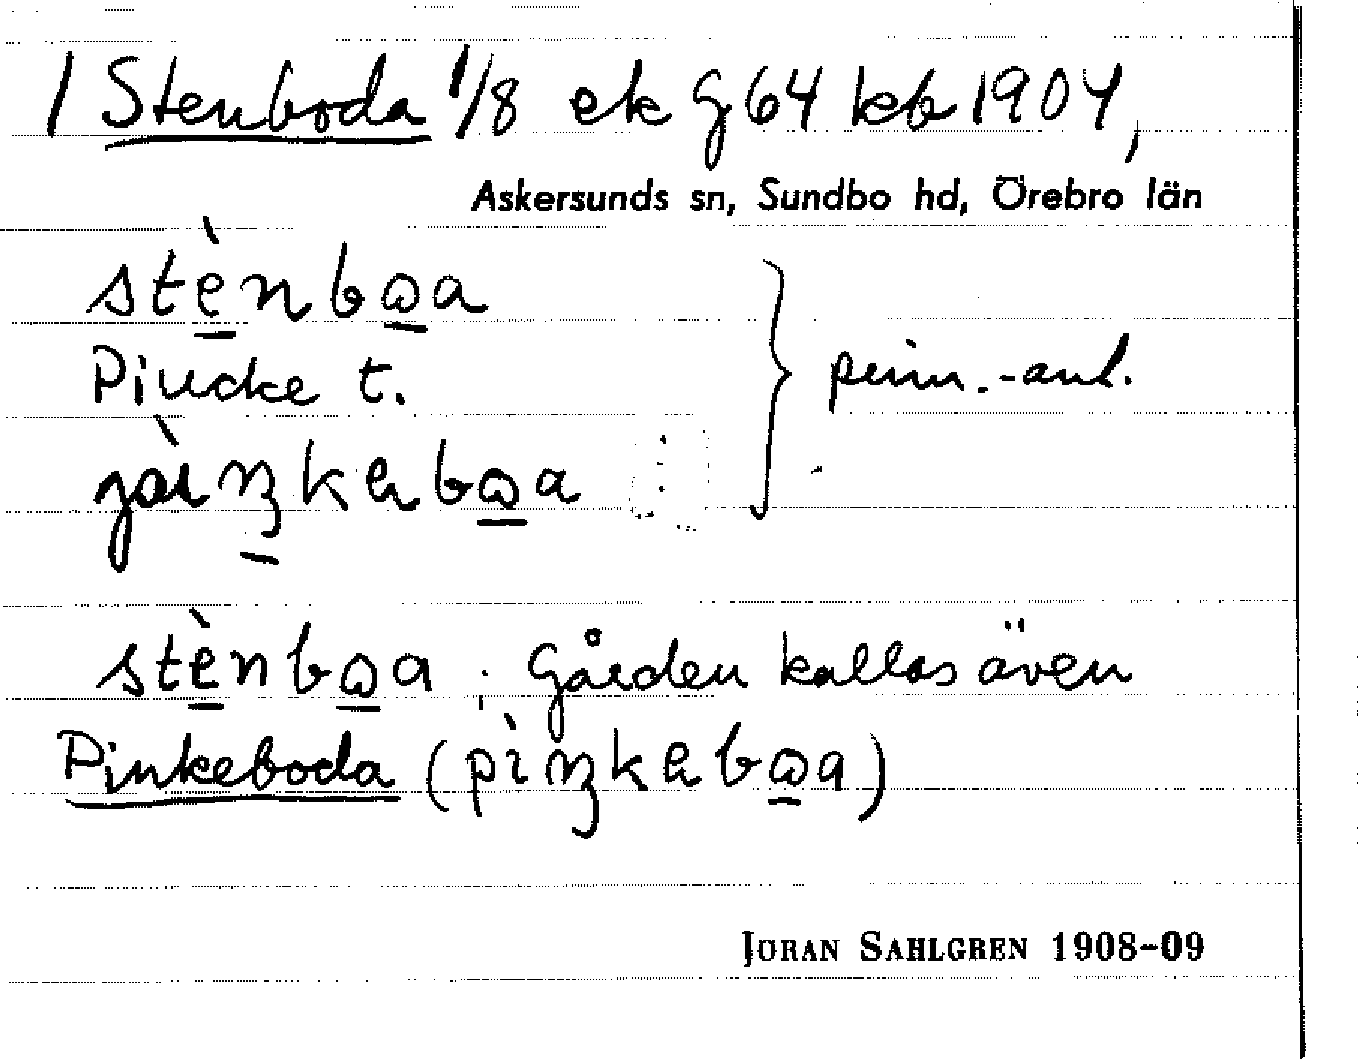 1 Stenboda 1/8 ek g 64 kb 1904,
Askersunds sn, Sundbo hd, Örebro län
stè̱nbω̱a
Pincke t.
} penn.-ant.
stè̱nbω̱a. Gården kallas även
Pinkeboda (pìŋkebω̱a)
JÖRAN SAHLGREN 1908-09